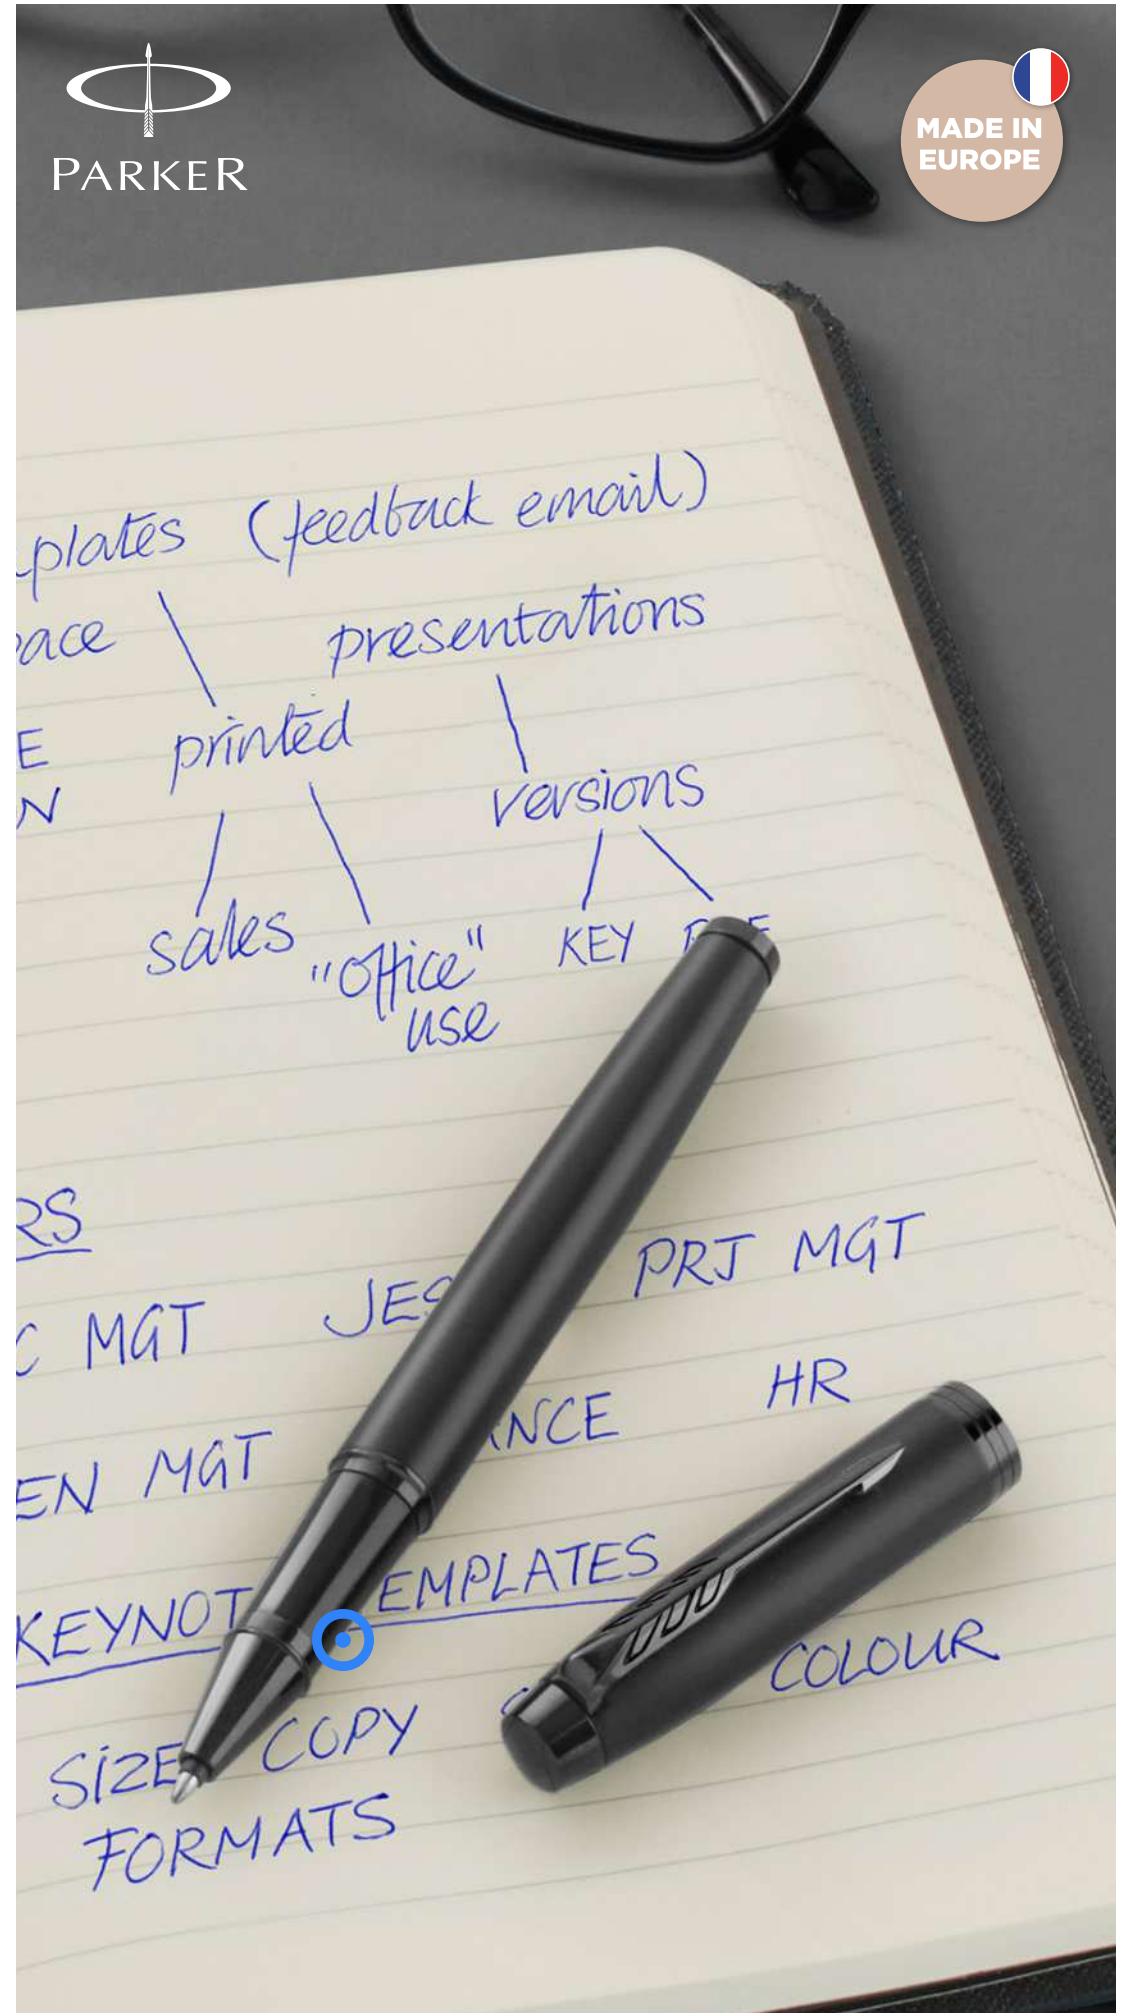 PARKER
MADE IN
EUROPE
plates (feedback email)
presentations
printed
versions
sales
"office"
use
KEY
RS
C MGT
PRJ MGT
HR
EN MGT
NCE
KEYNOT EMPLATES
SiZE COPY
COLOUR
FORMATS